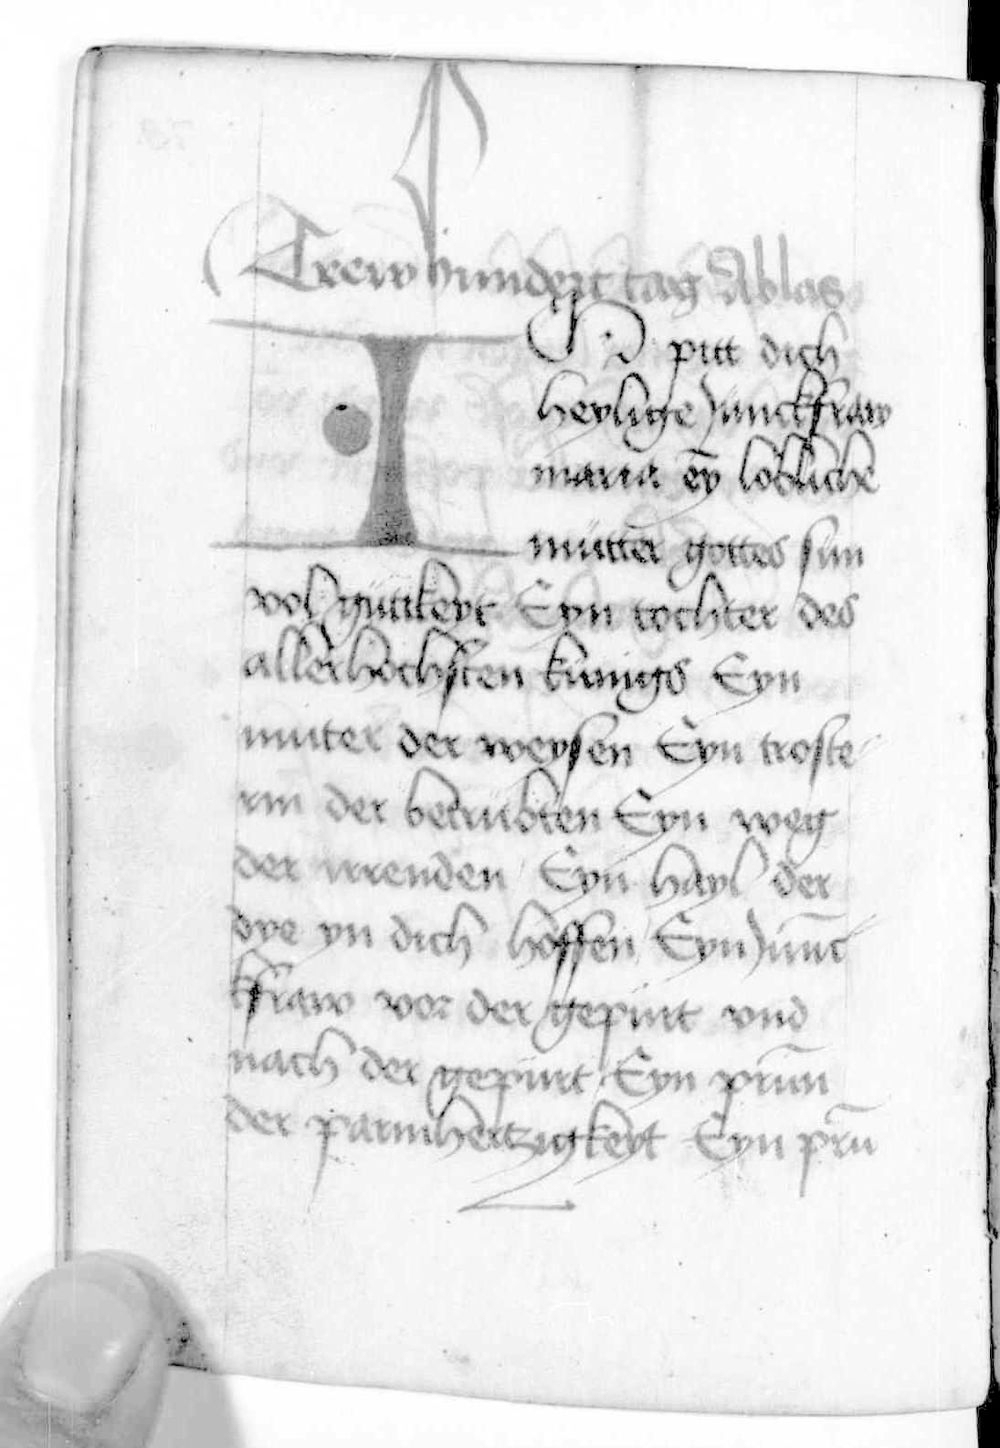 Trew hundert tag Ablas
ICh pitt dich
heylige Junckfraw
maria ey̅ lobliche
mütter gottes sün
vol gütikeyt Eyn tochter des
allerhochsten künigs Eyn
muter der weysen Eyn troste
rin der betrubten Eyn weg
der irrenden Eyn hayl der
dye yn dich hoffen Eyn Junc
kfraw vor der gepurt vnd
nach der gepurt Eyn prun̅
der parmhertzigkeyt Eyn pru̅